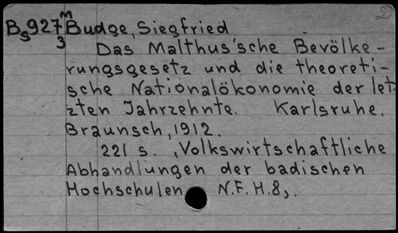 Bs927 M Budge, Siegfried
3
Das Malthus'sche Bevölke-
rungsgesetz und die theoreti-
sche Nationalökonomie der let-
zten Jahrzehnte. Karlsruhe,
Braunsch, 1912.
221 s. (Volkswirtschaftliche
Abhandlungen der badischen
Hochschulen N.F.H.8).